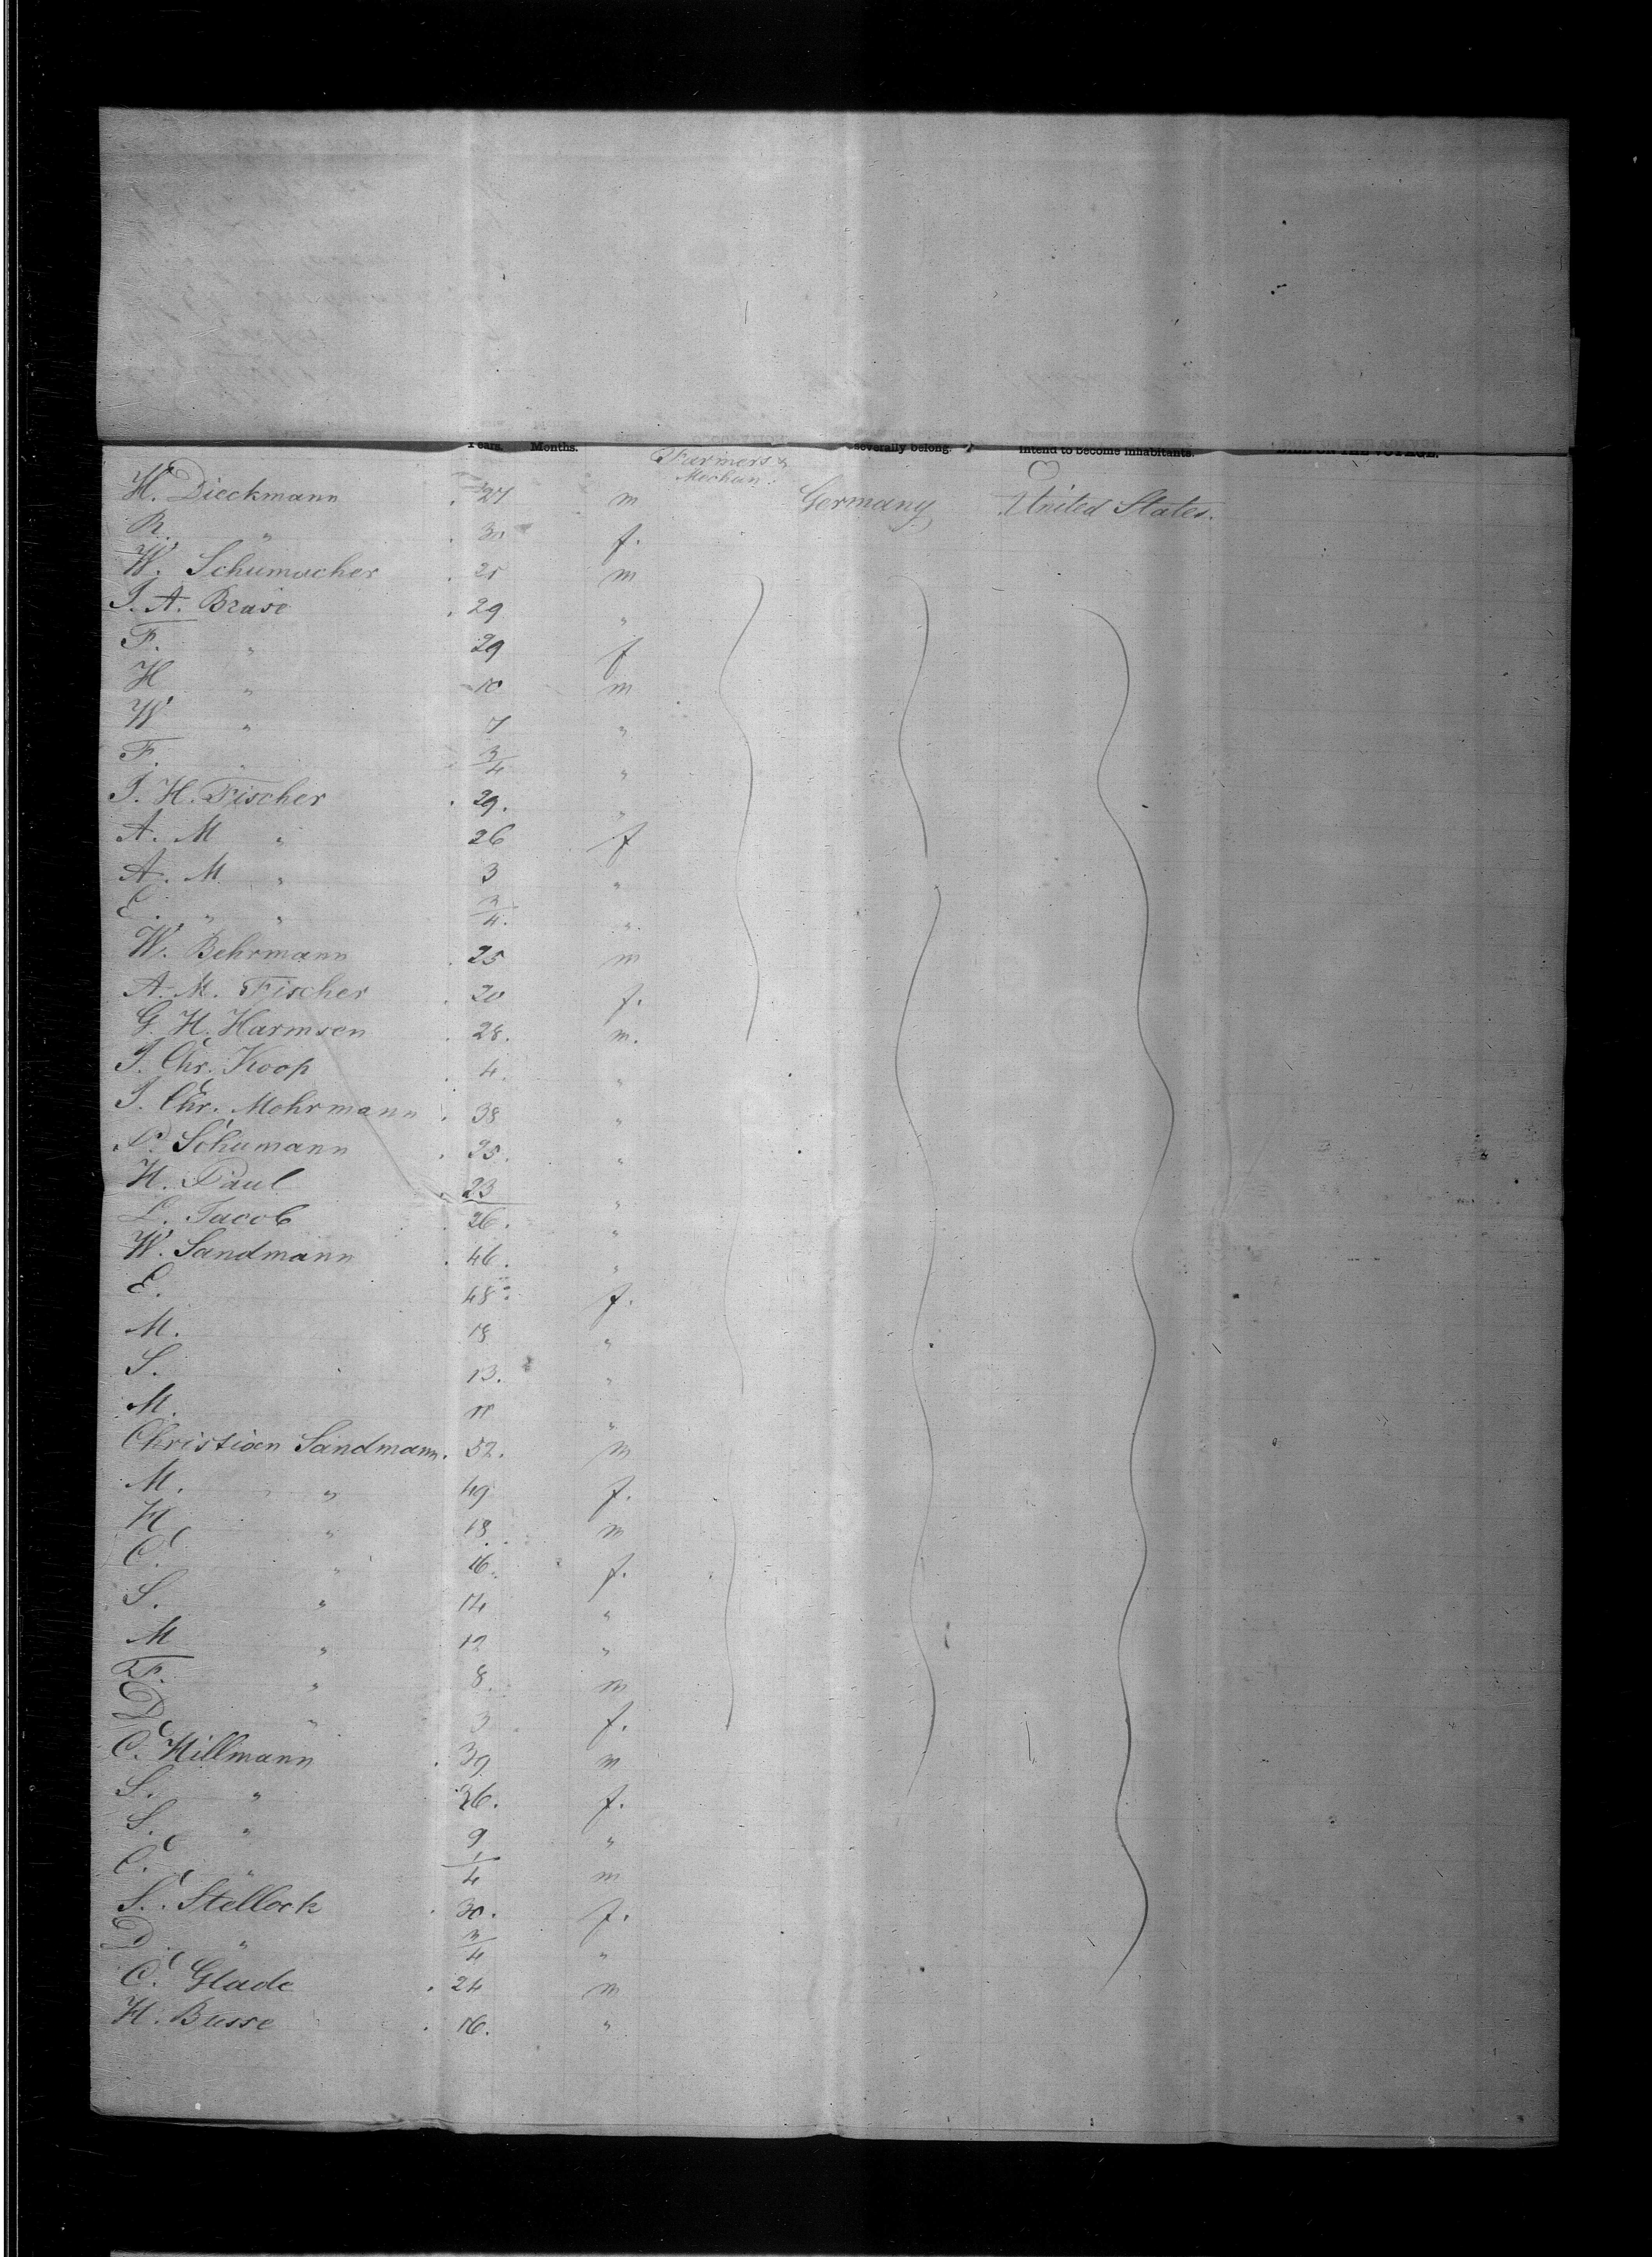 Years. Months. severally belong. intend to become inhabitants. DIED ON THE VOYAGE.
Farmers &
Mechan.
H. Dieckmann 27 m Germany United States.
R. " 30 f.
W. Schumacher 25 m
J. A. Brase 29 "
F. " 29 f
H " 10 m
W " 7 "
F. " 3/4 "
J. H. Fischer 29. "
A. M " 26 f
A. M " 3 "
E. " " 3/4. "
W. Behrmann 25 m
A. M. Fischer 20 f.
G. H. Harmsen 28. m.
J. Chr. Koop 4. "
J. Chr. Mohrmann 38 "
Schumann 25. "
H. Paul 23 "
L. Jacob 26. "
W. Sandmann 46. "
E. 48. f.
M. 18 "
S. 13. "
M. 11 "
Christian Sandmann. 52. m
M. " 49 f.
H " 18 m
C. " 16. f.
S. " 14 "
M " 12 "
F. " 8. m
D " 3 f.
C. Hillmann 39 m
S. " 36. f.
S. " 9 "
C. " 1/4 m
S. Stellock 30. f.
D " 3/4 "
C. Glade 24 m
H. Busse 16. "